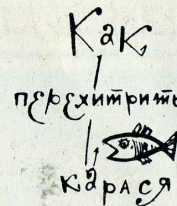 Как
перехитрить
карася